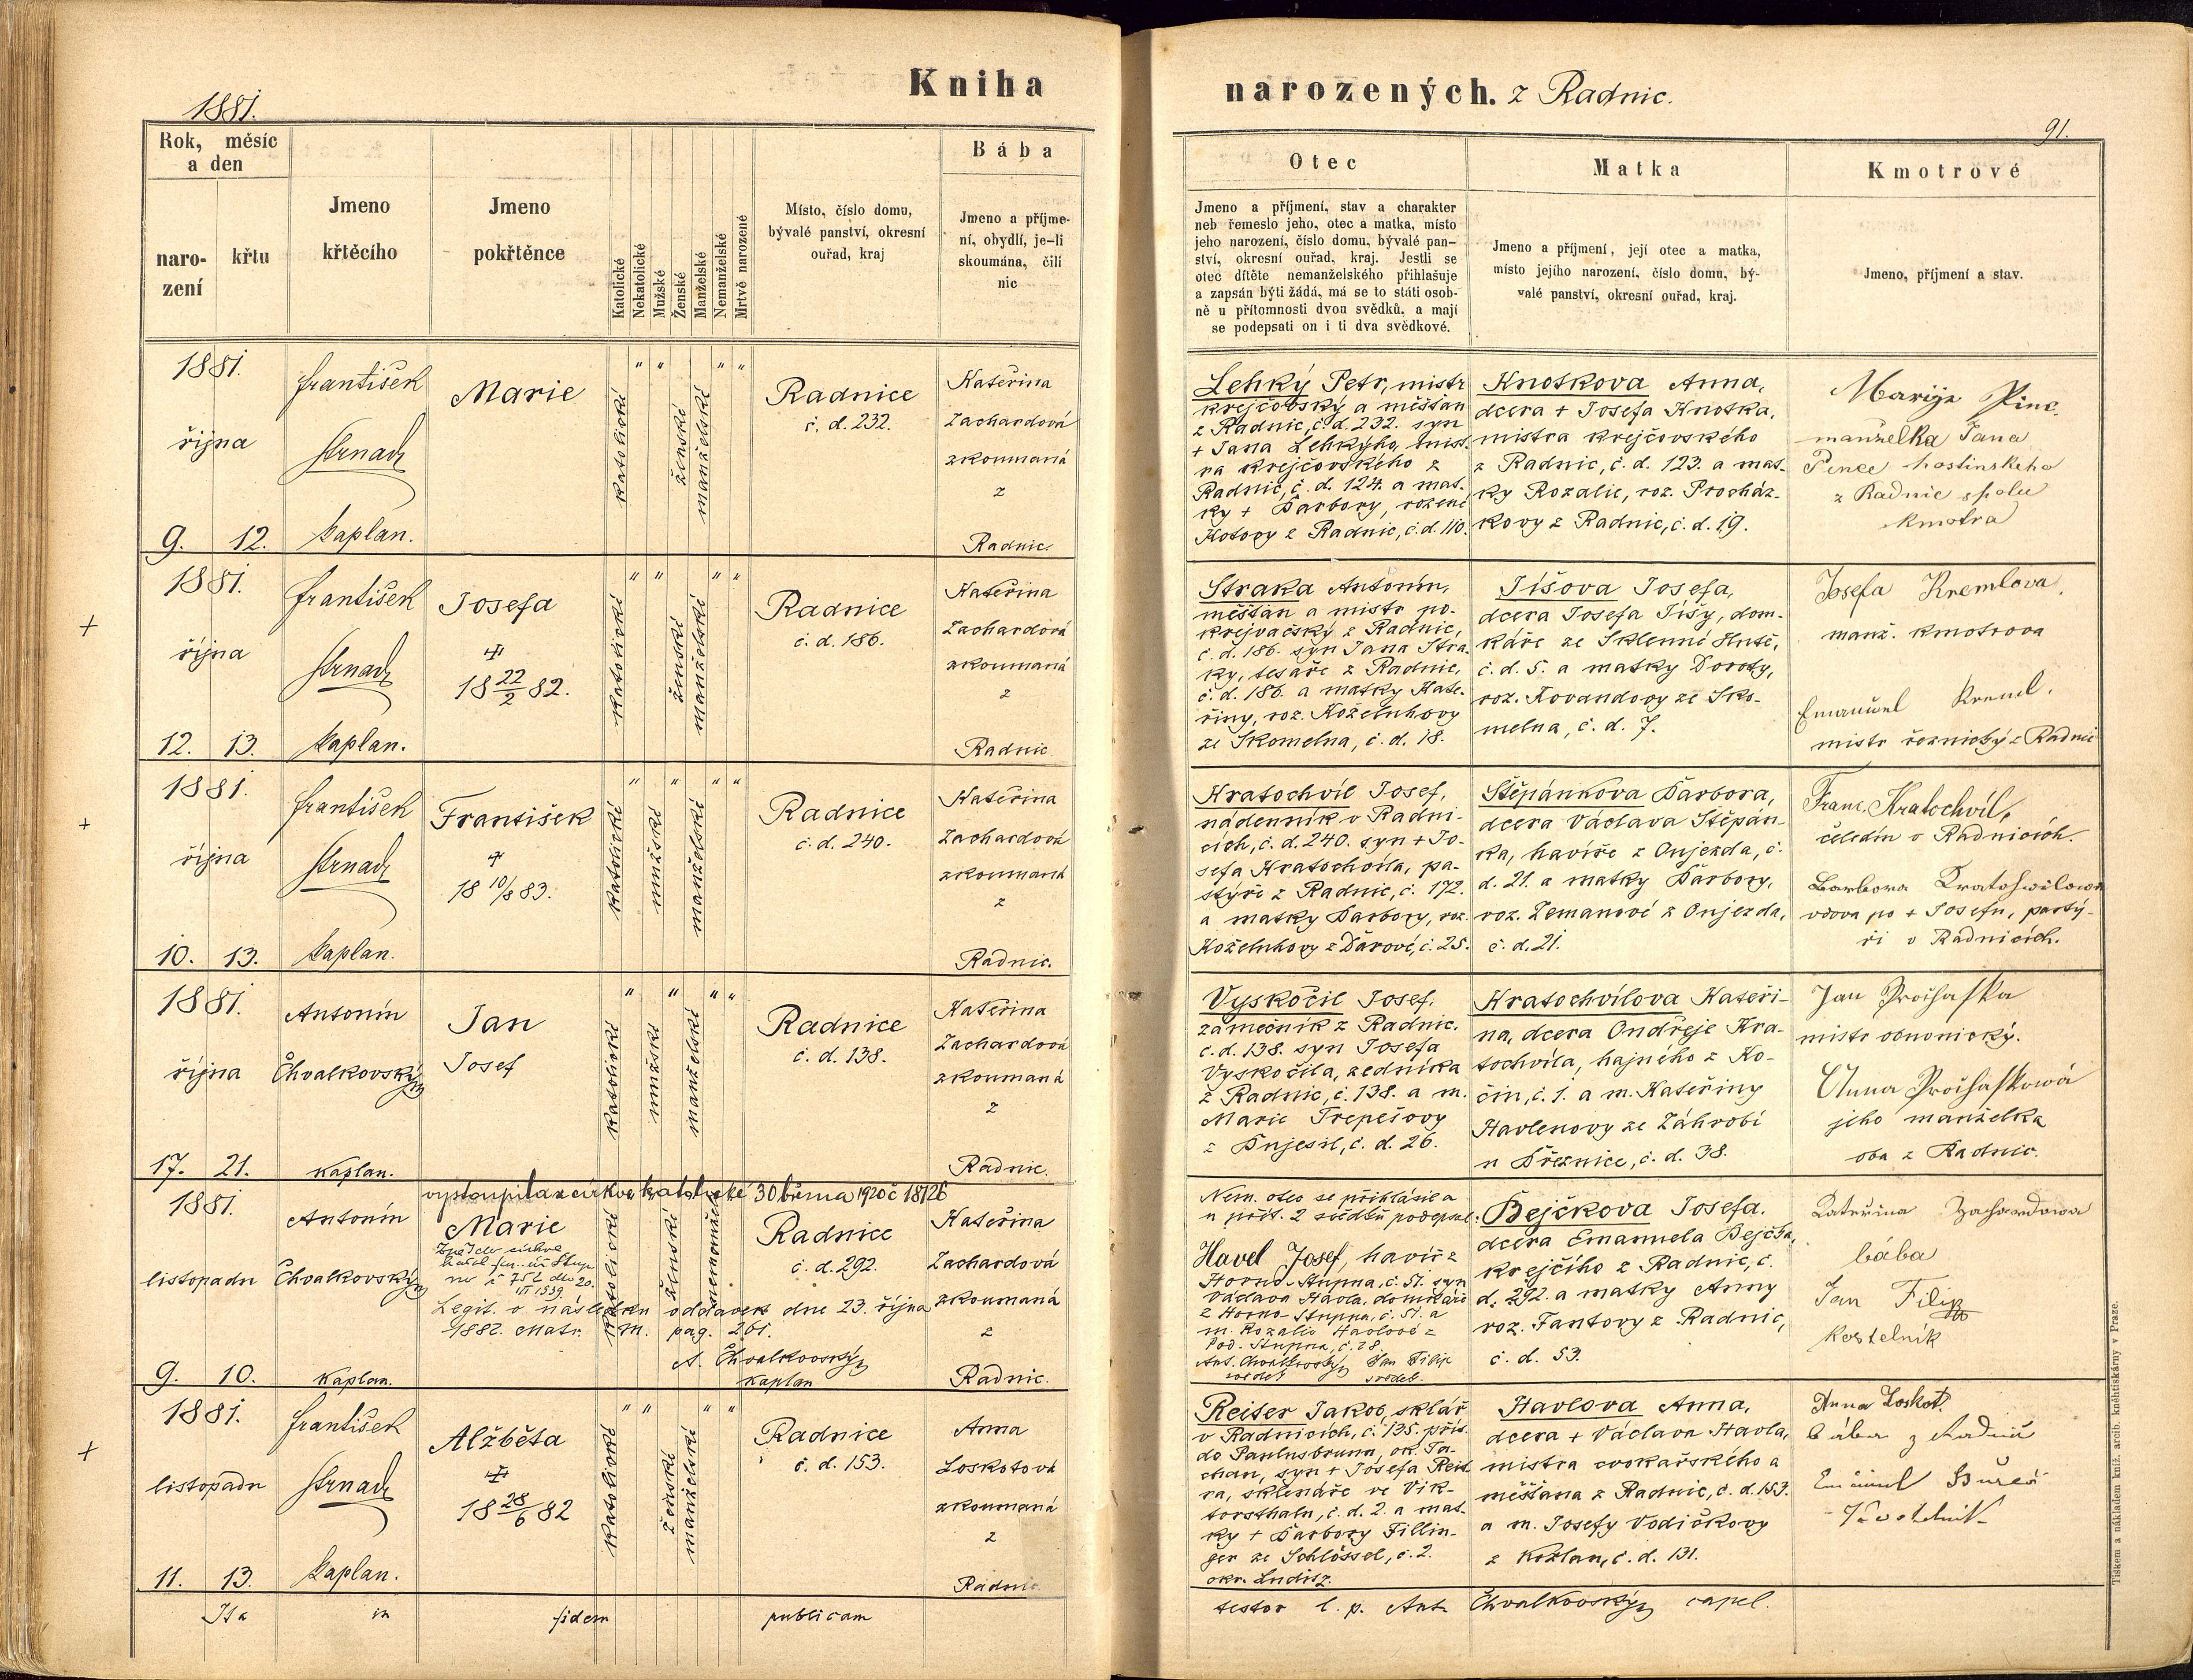 1881.
Kniha
narozených. z Radnic.
91.
Rok, měsíc
a den
naro-
zení
křtu
Jmeno
křtěcího
Jmeno
pokřtěnce
Katolické
Nekatolické
Mužské
Ženské
Manželské
Nemanželské
Mrtvě narozené
Místo, číslo domu,
bývalé panství, okresní
ouřad, kraj
Bába
Jmeno a příjme-
ní, obydlí, je-li
skoumána, čili
nic
Otec
Jmeno a příjmení, stav a charakter
neb řemeslo jeho, otec a matka, místo
jeho narození, číslo domu, bývalé pan-
ství, okresní ouřad, kraj. Jestli se
otec dítěte nemanželského přihlašuje
a zapsán býti žádá, má se to státi osob-
ně u přítomnosti dvou svědků, a mají
se podepsati on i ti dva svědkové.
Matka
Jmeno a příjmení, její otec a matka,
místo jejího narození, číslo domu, bý-
valé panství, okresní ouřad, kraj.
Kmotrové
Jmeno, příjmení a stav.
1881.
října
9. 12.
František
Strnad
kaplan.
Marie
katolické
ženské
manželské
Radnice
č. d. 232.
Kateřina
Zachardová
zkoumaná
z
Radnic.
Lehký Petr, mistr
krejčovský a měšťan
z Radnic, č. d. 232. syn
+ Jana Lehkýho, mist-
ra krejčovského z
Radnic, č. d. 124. a mat-
ky + Barbory, rozené
Kotovy z Radnic, č. d. 110.
Knotkova Anna,
dcera + Josefa Knotka,
mistra krejčovského
z Radnic, č. d. 123. a mat-
ky Rozalie, roz. Procház-
kovy z Radnic, č. d. 19.
Marije
manželka Jana
hostinskeho
z Radnic spolu
kmotra
+
1881.
října
12. 13.
František
Strnad
kaplan.
Josefa
18 22/2 82.
katolické
ženské
manželské
Radnice
č. d. 186.
Kateřina
Zachardová
zkoumaná
z
Radnic
Straka Antonín,
měšťan a mistr po-
krejvačský z Radnic,
č. d. 186. syn Jana Stra-
ky, tesaře z Radnic,
č. d. 186. a matky Kate-
řiny, roz. Koželuhovy
ze Skomelna, č. d. 18.
Tíšova Josefa,
dcera Josefa Tíšy, dom-
káře ze Sklenné Hutě,
č. d. 5. a matky Doroty,
roz. Kovandovy ze Sko-
melna, č. d. 7.
Josefa Kremlova,
manž. kmotrova
Emanuel Kreml,
mistr řeznický z Radnic
+
1881.
října
10. 13.
František
Strnad
kaplan.
František
18 10/8 83.
katolické
mužské
manželské
Radnice
č. d. 240.
Kateřina
Zachardová
zkoumaná
z
Radnic.
Kratochvíl Josef,
nádenník v Radni-
cích, č. d. 240. syn + Jo-
sefa Kratochvíla, pa-
stýře z Radnic, č. 172.
a matky Barbory, roz.
Koželuhovy z Darové, č. 25.
Štěpánkova Barbora,
dcera Václava Štěpán-
ka, havíře z Oujezda, č.
d. 21. a matky Barbory,
roz. Zemanové z Oujezda,
č. d. 21.
Franc. Kratochvíl,
čeledín v Radnicích.
Barbora Kratohwilowa
vdova po + Josefu, pastý-
ři v Radnicích.
1881.
října
17. 21.
Antonín
Chvalkovský
kaplan.
Jan
Josef
katolické
mužské
manželské
Radnice
č. d. 138.
Kateřina
Zachardová
zkoumaná
z
Radnic.
Vyskočil Josef,
zámečník z Radnic.
č. d. 138. syn Josefa
Vyskočila, zedníka
z Radnic, č. 138. a m.
Marie Trepešovy
z Bujesil, č. d. 26.
Kratochvílova Kateři-
na, dcera Ondřeje Kra-
tochvíla, hajného z Ko-
čin, č. 1. a m. Kateřiny
Havlenovy ze Záhrobí
u Březnice, č. d. 38.
Jan Prochaska
mistr obuvnický.
Anna Prochaskowá
jeho manželka
oba z Radnic.
vystoupila z církve katolické 30 března 1920 č 18126
1881.
listopadu
9. 10.
Antonín
Chvalkovský
kaplan.
Marie
Zpět do církve
katolické
ženské
nemanželské
Legit. v následku oddavek dne 23. října
1882. Matr. M. pag. 261.
A. Chvalkovský
kaplan
Radnice
č. d. 292.
Kateřina
Zachardová
zkoumaná
z
Radnic.
Nem. otec se přihlásil a
u přít. 2 svědků podepsal:
Havel Josef, havíř z
Horno-Stupna, č. 51. syn
Václava Havla, domkáře
z Horno-Stupna, č. 51. a
m. Rozalie Havlové z
Pod. Stupna, č. 28.
Ant. Chvalkovský Jan Filip
svědek svědek.
Bejčkova Josefa.
dcera Emanuela Bejčka,
krejčího z Radnic, č.
d. 292. a matky Anny
roz. Fantovy z Radnic,
č. d. 53.
Kateřina Zachardowa
bába
Jan Filip
Kostelník
+
1881.
listopadu
11. 13.
František
Strnad
kaplan.
Alžběta
18 28/6 82
katolické
ženské
manželské
Radnice
č. d. 153.
Anna
Loskotová
zkoumaná
z
Radnic
Reiter Jakob, sklář
v Radnicích, č. 135. přís.
do Paulusbrunn, ok. Ta-
chau, syn + Josefa Reit-
ra, sklenáře ve Vik-
torsthalu, č. d. 2. a mat-
ky + Barbory Fillin-
ger ze Schlössel, č. 2.
Havlova Anna,
dcera + Václava Havla,
mistra cvokařského a
měšťana z Radnic, č. d. 153.
a m. Josefy Vodičkovy
z Kožlan, č. d. 131.
Anna Loskot.
bába z Radnic
Bureš
Ita in fidem publicam
testor l. p. Ant. Chvalkovský capel.
Tiskem a nákladem kníž. arcib. knihtiskárny v Praze.